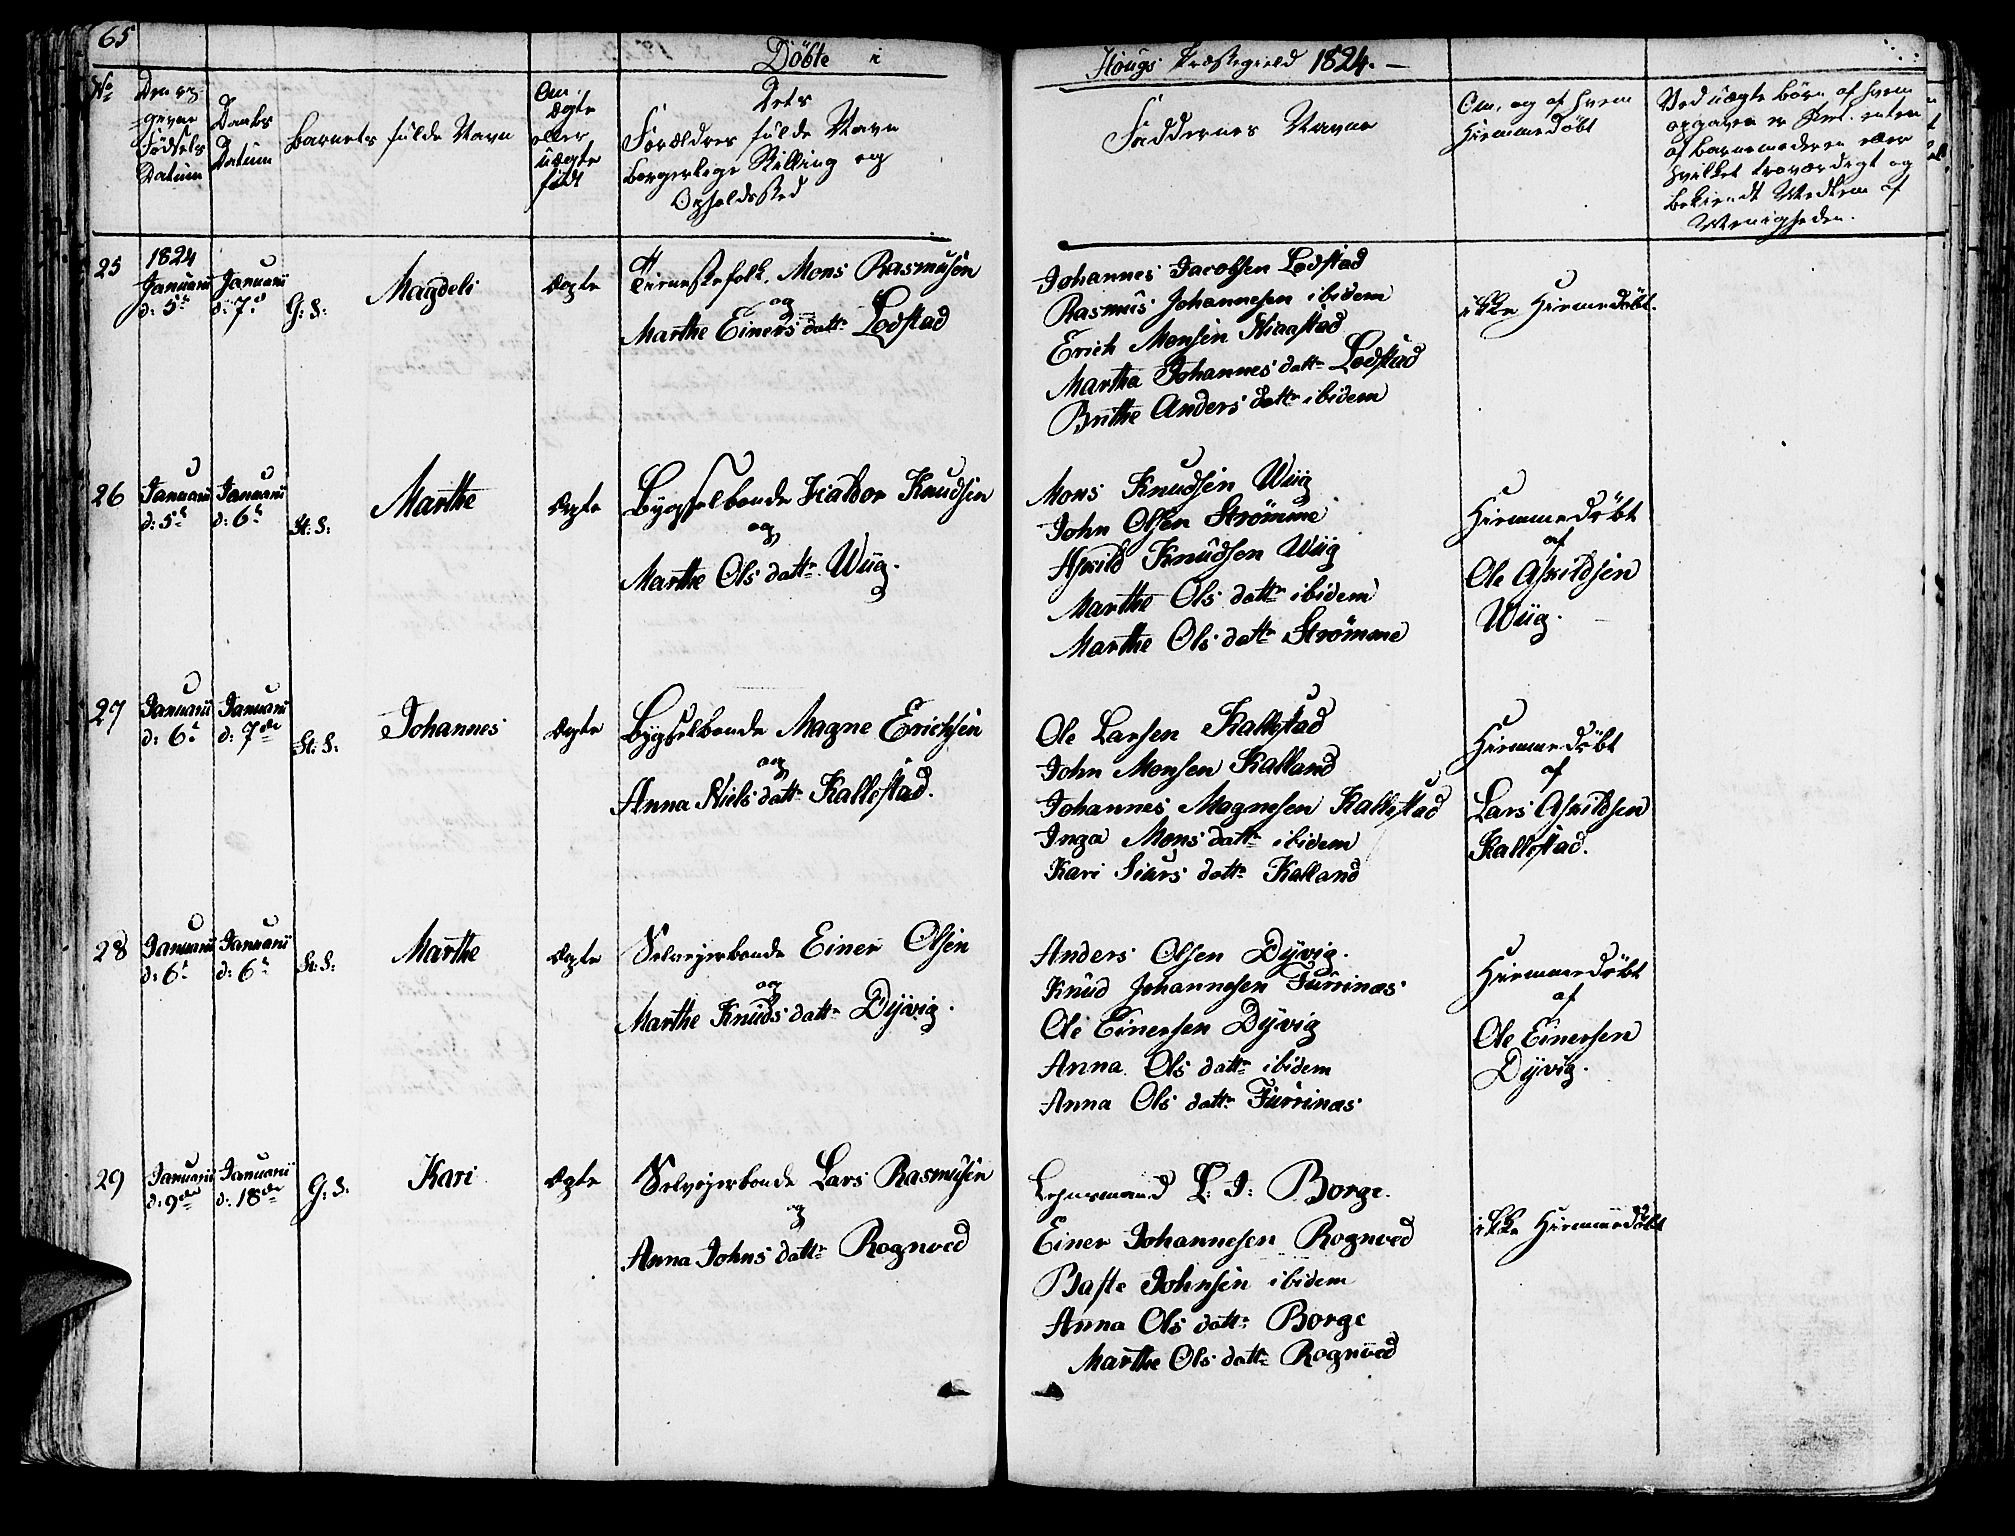 65
Döbte i
Hougs Præstegield 1824.
No
Den op-
givne
Fødsels
Datum
Daabs
Datum
Barnets fulde Navn
Om
ægte
eller
uægte
født
Dets
Forældres fulde Navn
borgerlige Stilling og
Opholdssted
Faddernes Navne
Om, og af hvem
Hiemmedøbt
Ved uægte Børn af hvem
opgaven er skel. enten
af Barnemoderen eller
hvilket troværdigt og
bekiendt Medlem af
Menigheden.
25
1824
Januarii
d: 5te
Januarii
d: 7de
G: S:
Magdeli
ægte
Tieneste folk, Mons Rasmusen
og
Marthe Einers datt: Lodstad
Johannes Jacobsen Lodstad
Rasmus Johannesen ibidem
Erich Monsen Niaastad
Martha Johannes datt: Lodstad
Brithe Anders datt: ibidem
ikke Hiemmedøbt.
26
Januarii
d: 5te
Januarii
d: 6te
St: S:
Marthe
ægte
Bygselbonde Haldor Knudsen
og
Marthe Ols datt: Wiig.
Mons Knudsen Wiig
John Olsen Strømme
Askild Knudsen Wiig
Marthe Ols datt: ibidem
Marthe Ols datt: Strømme
Hiemmedøbt
af
Ole Askildsen
Wiig.
27
Januarii
d: 6te
Januarii
d: 7de
St: S:
Johannes
ægte
Bygselbonde Magne Erichsen
og
Anna Niels datt: Kallestad.
Ole Larsen Kallestad
John Monsen Kalland
Johannes Magnesen Kallestad
Inga Mons datt: ibidem
Kari Siurs datt: Kalland
Hiemmedøbt
af
Lars Askildsen
Kallestad.
28
Januarii
d: 6te
Januarii
d: 6te
St: S:
Marthe
ægte
Selveyerbonde Einer Olsen
og
Marthe Knuds datt: Dyvig.
Anders Olsen Dyvig.
Knud Johannesen Furrinæs
Ole Einersen Dyvig
Anna Ols datt: ibidem
Anna Ols datt: Furrinæs
Hiemmedøbt
af
Ole Einersen
Dyvig.
29
Januarii
d: 9de
Januarii
d: 18de
G: S:
Kari
ægte
Selveyerbonde Lars Rasmusen
og
Anna Johns datt: Rognved
Lehnsmand L: J: Borge.
Einer Johannesen Rognved
Baste Johnsen ibidem
Anna Ols datt: Borge
Marthe Ols datt: Rognved
ikke Hiemmedøbt